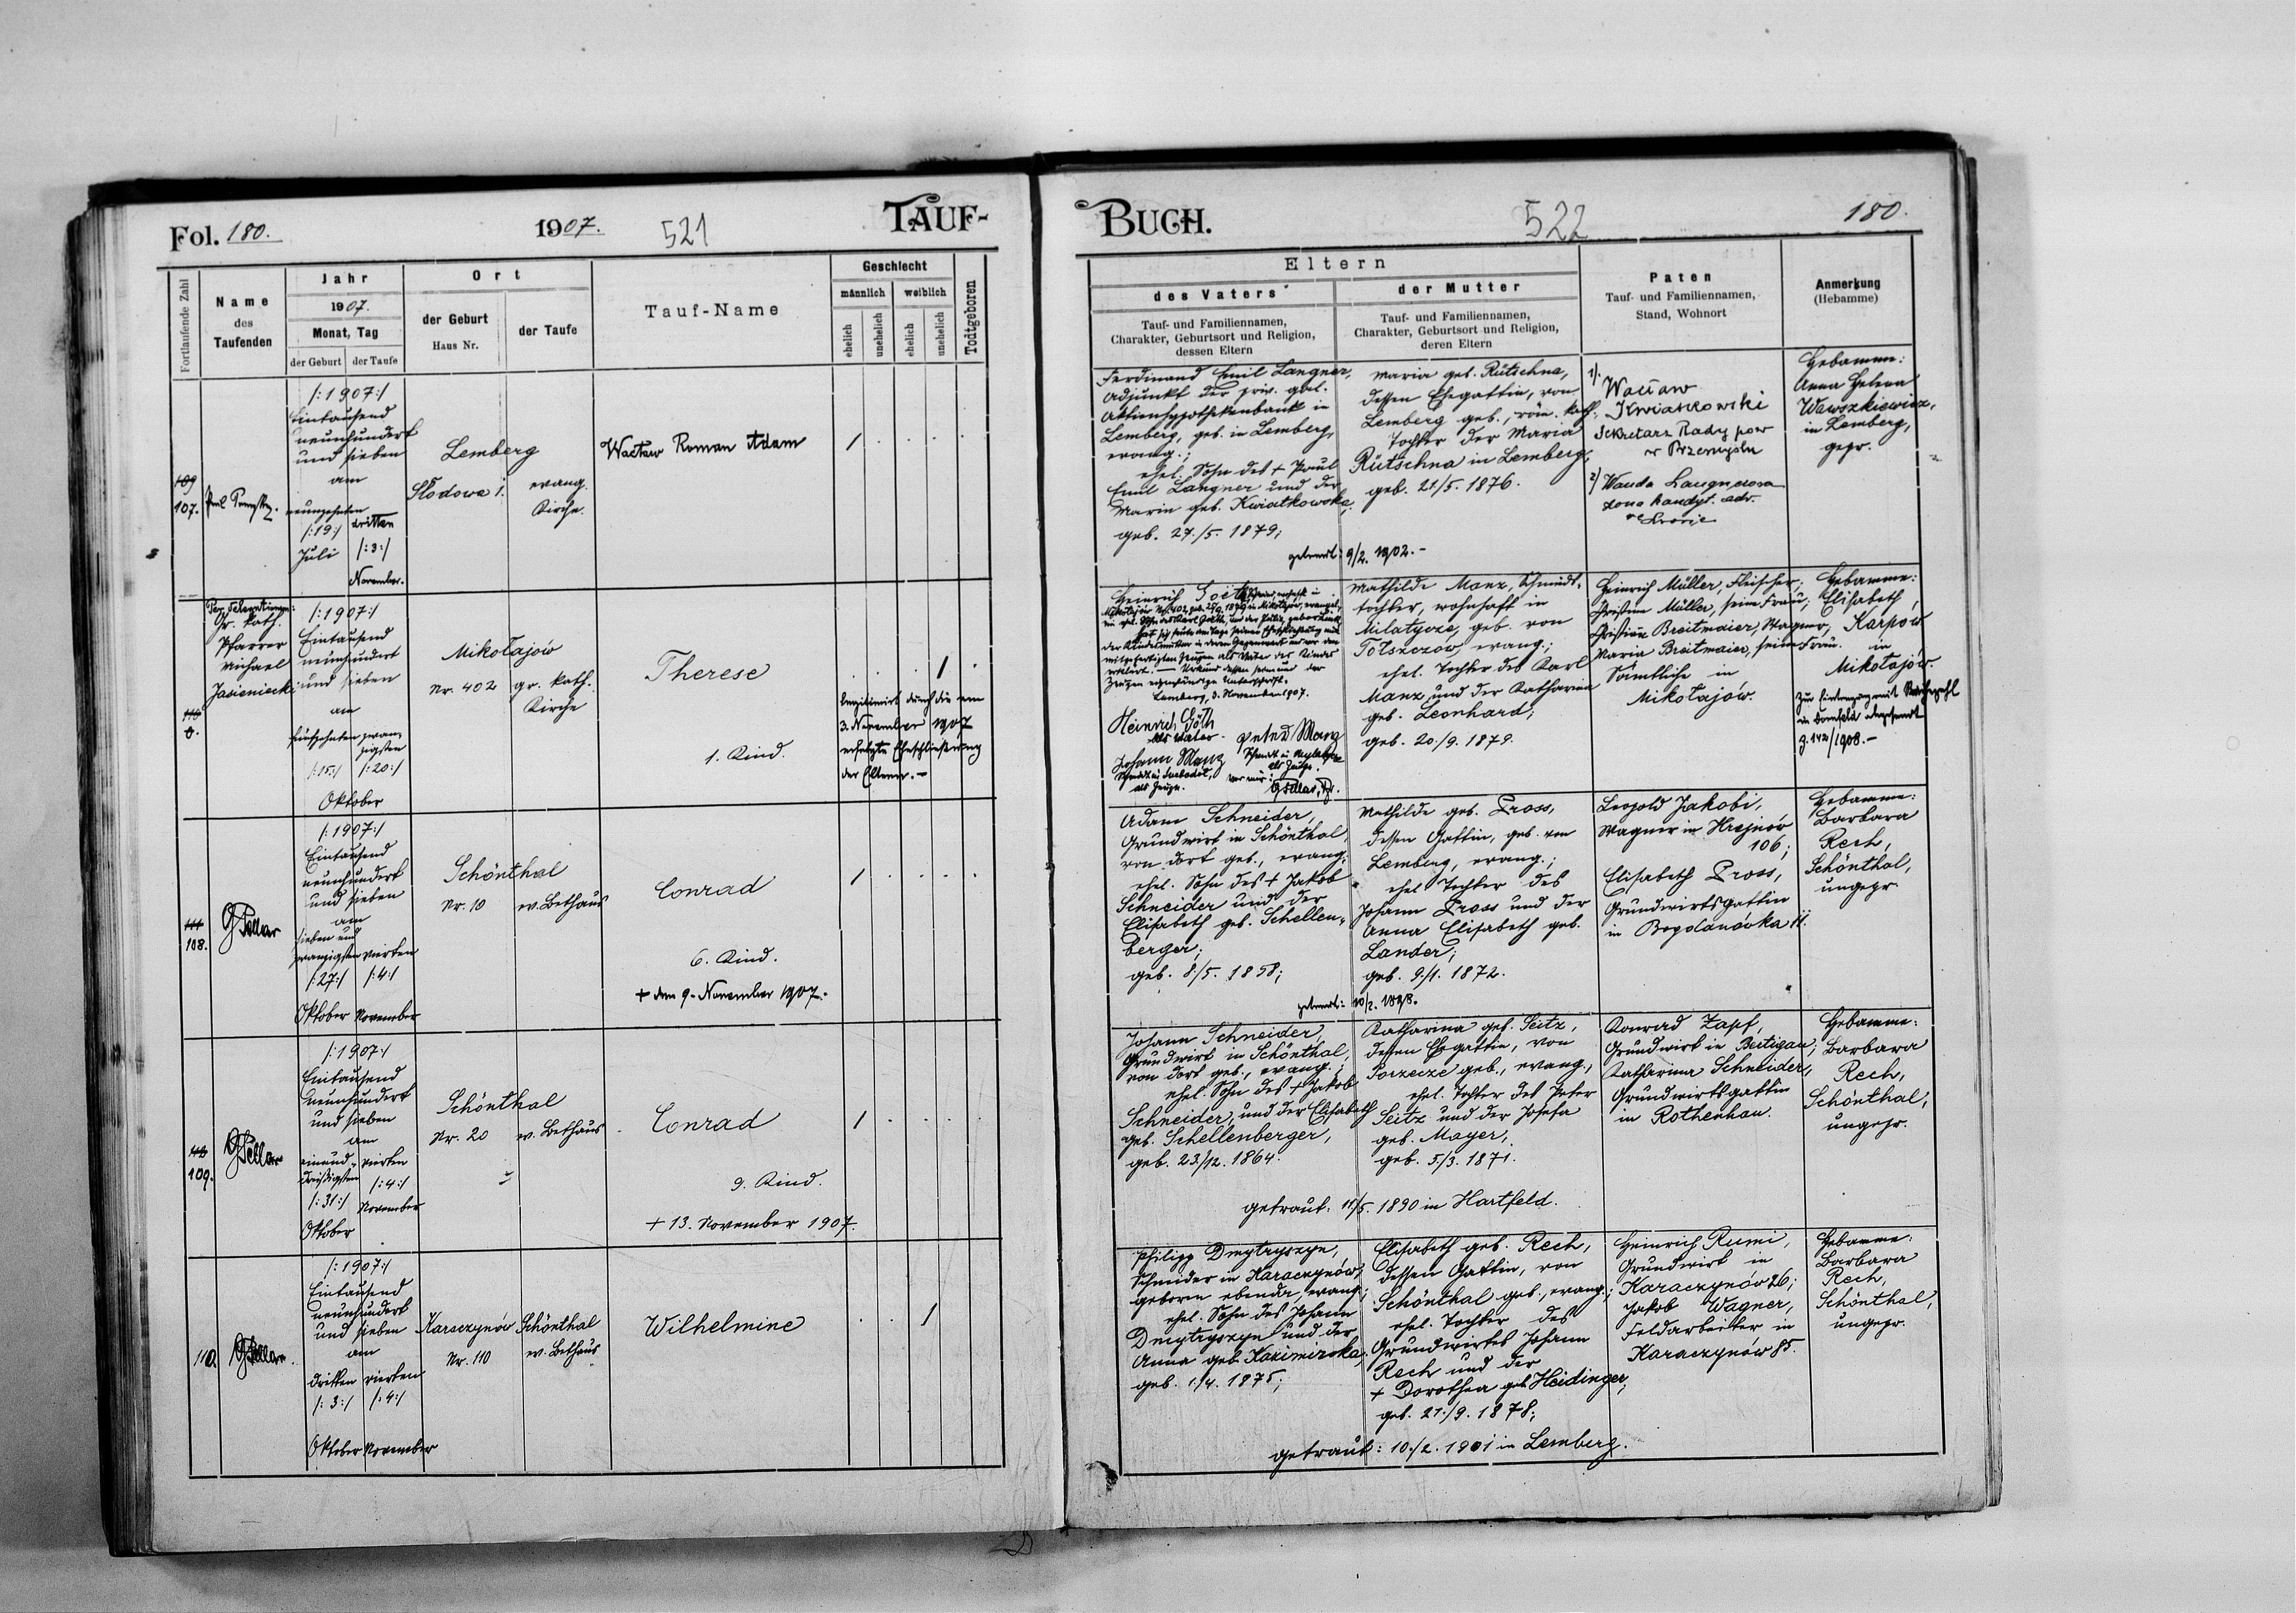 Fol. 180.
1907.
521
TAUF-
Fortlaufende Zahl
Name
des
Taufenden
Jahr
1907.
Monat, Tag
der Geburt
der Taufe
Ort
der Geburt
Haus Nr.
der Taufe
Tauf-Name
Geschlecht
männlich
weiblich
ehelich
unehelich
ehelich
unehelich
Todtgeboren
109
107.
/:1907:/
Eintausend
neunhundert
und sieben
am
neunzehnten
/:19:/
Juli
dritten
/:3:/
November.
Lemberg
Słodowa 1.
evang.
Kirche.
Wacław Roman Adam
/
110
gr. kath.
Pfarrer
Michael
Jasieniecki
/:1907:/
Eintausend
neunhundert
und sieben
am
fünfzehnten
/:15:/
zwan-
zigsten
/:20:/
Oktober
Mikołajów
Nr. 402
gr. kath.
Kirche
Therese
1. Kind.
/
legitimiert durch die am
3. November 1907
erfolgte Eheschließung
der Eltern.-
111
108.
/:1907:/
Eintausend
neunhundert
und sieben
am
sieben und
zwanzigsten
/:27:/
Oktober
vierten
/:4:/
November
Schönthal
Nr. 10
ev. Bethaus
Conrad
6. Kind.
+ den 9. November 1907.
/
112
109.
/:1907:/
Eintausend
neunhundert
und sieben
am
einund-
dreißigsten
/:31:/
Oktober
vierten
/:4:/
November
Schönthal
Nr. 20
ev. Bethaus
Conrad
9. Kind.
+ 13. November 1907.
/
110.
/:1907:/
Eintausend
neunhundert
und sieben
am
dritten
/:3:/
Oktober
vierten
/:4:/
November
Karaczynów
Nr. 110
Schönthal
ev. Bethaus
Wilhelmine
/
BUCH.
522
180.
Eltern
des Vaters
Tauf- und Familiennamen,
Charakter, Geburtsort und Religion,
dessen Eltern
der Mutter
Tauf- und Familiennamen,
Charakter, Geburtsort und Religion,
deren Eltern
Paten
Tauf- und Familiennamen,
Stand, Wohnort
Anmerkung
(Hebamme)
Ferdinand Emil Langner,
Adjunkt der priv. gal.
Aktienhypothekenbank in
Lemberg, geb. in Lemberg,
evang.;
ehel. Sohn des + Paul
Emil Langner und der
Maria geb. Kwiatkowska,
geb. 27./5. 1879;
Maria geb. Rütschna,
dessen Ehegattin, von
Lemberg geb., röm. kath.
Tochter der Maria
Rütschna in Lemberg,
geb. 21/5. 1876.
getraut: 9/2. 1902.-
1).
Wacław
Kwiatkowski
Sekretarz Rady pow
w Przemyślu
2) Wanda Langnerowa
żona kandyt. adv.
Hebamme:
Anna Helena
Wawszkiewicz,
in Lemberg,
gepr.
Heinrich
Lemberg, 3. November 1907.
Heinrich Göth
als Vater.
Johann Manz
als Zeuge.
Peter Manz
als Zeuge.
vor mir:
Mathilde Manz, Schmidt-
tochter, wohnhaft in
Milatycze, geb. von
Tołszczów evang.;
ehel. Tochter des Karl
Manz und der Katharina
geb. Leonhard;
geb. 20./9. 1879.
Heinrich Müller, Fleischer;
Christine Müller, seine Frau;
Christian Breitmaier, Wagner,
Maria Breitmaier, seine Frau.
Sämtliche in
Mikołajów.
Hebamme:
Elisabeth
Karpów
in
Mikołajów.
Adam Schneider,
Grundwirt in Schönthal,
von dort geb., evang.;
ehel. Sohn des + Jakob
Schneider und der
Elisabeth geb. Schellen-
berger;
geb. 8./5. 1858;
Mathilde geb. Pross,
dessen Gattin, geb. von
Lemberg, evang.;
ehel. Tochter des
Johann Pross und der
Anna Elisabeth geb.
Lander;
geb. 9./1. 1872.
Leopold Jakobi,
Wagner in Hrejnów
106;
Elisabeth Pross,
Grundwirtsgattin
in Bogdanówka 11.
Hebamme:
Barbara
Rech,
Schönthal,
ungepr.
Johann Schneider,
Grundwirt in Schönthal,
von dort geb., evang.;
ehel. Sohn des + Jakob
Schneider, und der Elisabeth
geb. Schellenberger,
geb. 23./12. 1864.
Katharina geb. Seitz,
dessen Ehegattin, von
Porzecze geb., evang.,
ehel. Tochter des Peter
Seitz und der Josefa
geb. Mayer,
geb. 5./3. 1871.
getraut: 11/5. 1890 in Hartfeld.
Konrad Zapf,
Grundwirt in Bertigau;
Katharina Schneider,
Grundwirtsgattin
in Rothenhan.
Hebamme:
Barbara
Rech,
Schönthal,
ungepr.
Philipp Dmytryszyn,
Schneider in Karaczynów,
geboren ebenda, evang.;
ehel. Sohn des Johann
Dmytryszyn und der
Anna geb. Kazimirska.
geb. 1./4. 1875;
Elisabeth geb. Rech,
dessen Gattin, von
Schönthal geb., evang.;
ehel. Tochter des
Grundwirtes Johann
Rech und der
+ Dorothea geb. Heidinger,
geb. 21./9. 1878;
getraut: 10./2. 1901 in Lemberg.
Heinrich Rumi,
Grundwirt in
Karaczynów 26;
Jakob Wagner,
Feldarbeiter in
Karaczynów 85.
Hebamme:
Barbara
Rech,
Schönthal,
ungepr.